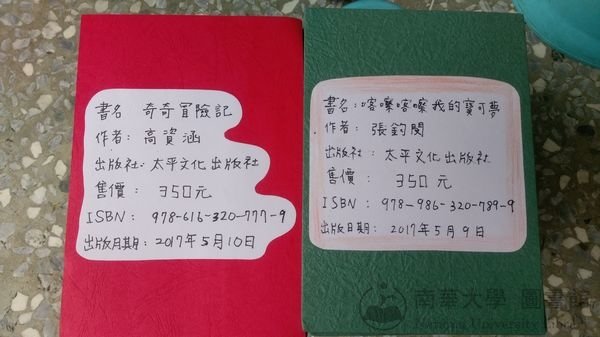 書名 奇奇冒險記
作者: 高資涵
出版社: 太平文化出版社
售價: 350元
ISBN: 978-616-320-777-9
出版月期: 2017年5月10日
書名: 喀嚓喀嚓我的寶可夢
作者: 張鈞閔
出版社: 太平文化出版社
售價: 350元
ISBN: 978-986-320-789-9
出版日期: 2017年5月9日
南華大學 圖書館
University Library